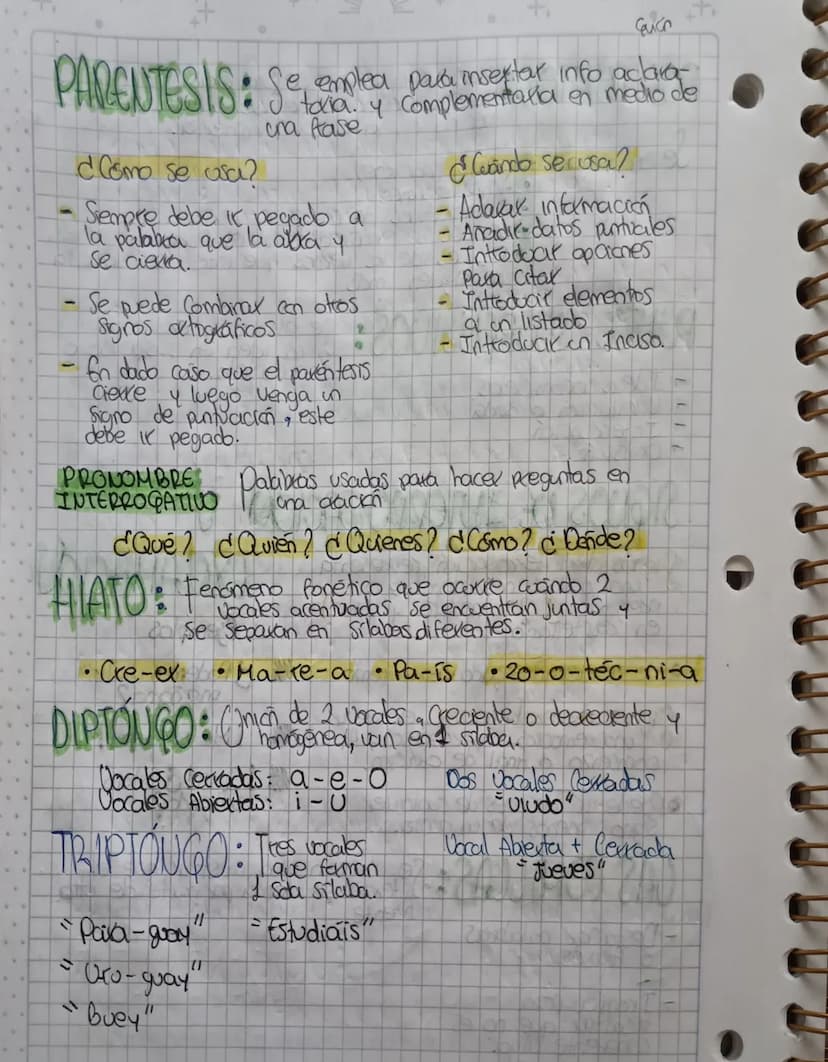 PARENTESIS: Se emplea para insertar info aclara-
toria. y complementaria en medio de
una frase
¿Cómo se usa?
- Siempre debe ir pegado a
la palabra que la abra y
se cierra.
- Se puede combinar con otros
signos ortográficos
- En dado caso que el paréntesis
cierre y luego venga un
signo de puntuación, este
debe ir pegado.
¿Cuándo se usa?
- Aclarar información
- Anadir datos puntuales
- Introducir opciones
para citar
- Introducir elementos
a un listado
- Introducir un Inciso.
PRONOMBRE
INTERROGATIVO
Palabras usadas para hacer preguntas en
una oración
¿Qué? ¿Quién? ¿Quienes? ¿Cómo? ¿Dónde?
HIATO: Fenómeno fonético que ocurre cuándo 2
vocales acentuadas se encuentran juntas y
se separan en sílabas diferentes.
• Cre-er • Ma-re-a • Pa-ís • zo-o-téc-ni-a
DIPTÓNGO: Unión de 2 vocales, creciente o decreciente y
homogénea, van en 1 sílaba.
Vocales Cerradas: a-e-o
Vocales Abiertas: i-u
Dos Vocales Cerradas
"Viudo"
Vocal Abierta + Cerrada
"Jueves"
TRIPTÓNGO: Tres vocales
que forman
1 sola sílaba.
"Para-guay" "Estudiáis"
"Uru-guay"
"Buey"